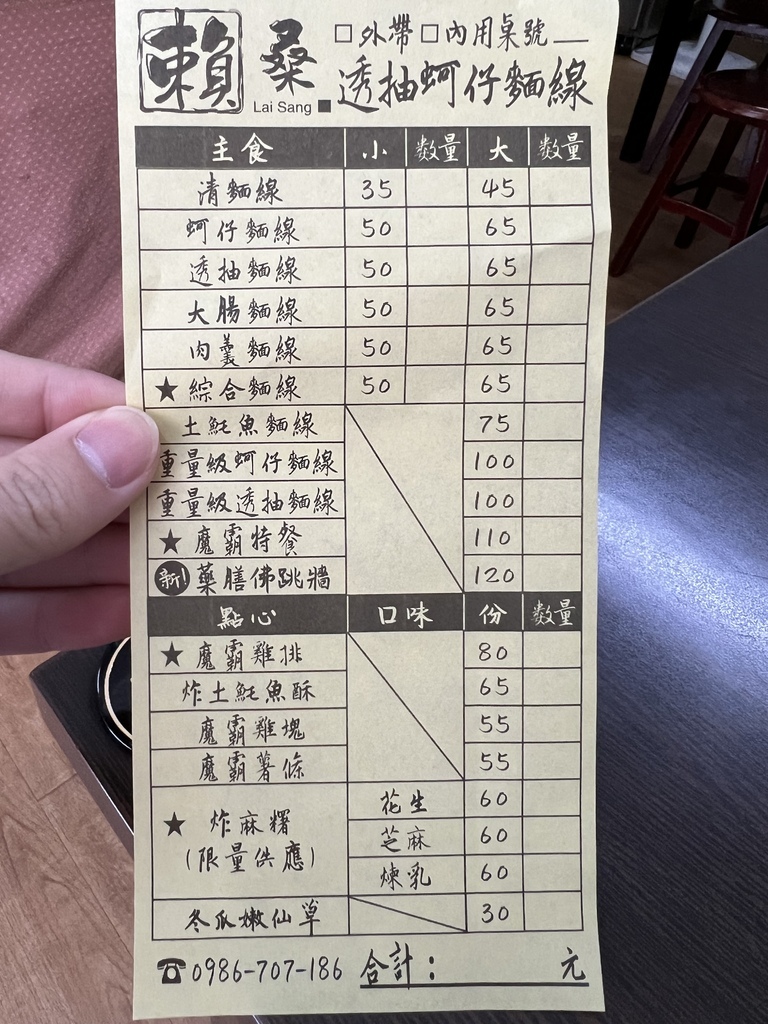 賴桑 □外帶□內用桌號__
Lai Sang ■透抽蚵仔麵線
主食 小 數量 大 數量
清麵線 35 45
蚵仔麵線 50 65
透抽麵線 50 65
大腸麵線 50 65
肉羹麵線 50 65
★綜合麵線 50 65
土魠魚麵線 75
重量級蚵仔麵線 100
重量級透抽麵線 100
★魔霸特餐 110
新!藥膳佛跳牆 120
點心 口味 份 數量
★魔霸雞排 80
炸土魠魚酥 65
魔霸雞塊 55
魔霸薯條 55
★炸麻糬 花生 60
(限量供應) 芝麻 60
煉乳 60
冬瓜嫩仙草 30
☎0986-707-186 合計：　　　元